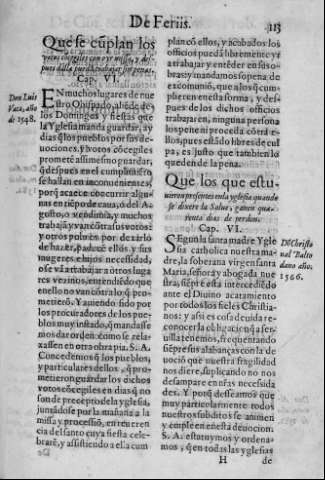 De Feriis.
113
Que se cũplan los
votos cõcegiles con oyr missa, y des
Cap. VI.
Don Luis
Vaca, año
de 1548.
EN muchos lugares de nue
stro Obispado, allẽde de
los Domingos y fiestas que
la Yglesia manda guardar, ay
dias q̃ los pueblos por sus de-
uociones, y votos cõcegiles
prometẽ assimesmo guardar,
y despues en el cumplimiẽto
se hallan en inconuenientes,
porq̃ acaece concurrir algu-
nas en tiẽpo de caua, o del A-
gosto, o vendimia, y muchos
trabajã y vã contra sus votos:
y otros pobres por dexarlo
de hazer, padecẽ ellos y sus
mugeres e hijos necessidad,
o se vã a trabajar a otros luga
res vezinos, entendiẽdo que
en ello no van contra lo q̃ se
prometio. Y auiendo sido por
los procuradores de los pue-
blos muy instado, q̃ mandasse
mos dar orden como se rela-
xassen en otra obra pia. S. A.
Concedemos a los pueblos,
y particulares dellos, q̃ pro-
metieron guardar los dichos
votos cõcegiles en dias q̃ no
son de precepto dela yglesia,
juntãdose por la mañana a la
missa y processiõ, en reueren
cia del santo cuya fiesta cele-
brarẽ, y assistiendo a ella cum
plan cõ ellos, y acabados los
officios puedã libremẽte yr
a trabajar y entẽder en sus o-
bras: y mandamos so pena de
excomuniõ, que a los q̃ cum-
plieren en esta forma, y des-
pues de los dichos officios
trabajaren, ninguna persona
los pene ni proceda cõtra e-
llos, pues estãdo libres de cul
pa, es justo que tambien lo
queden de la pena.
Que los que estu-
uieren presentes en la yglesia quande
se dixere la Salue, ganen qua-
renta dias de perdon.
Cap. VI.
Dõ Christo
ual Balto
dano año
1506.
SEgun la santa madre Ygle
sia catholica nuestra ma-
dre, la soberana virgen santa
Maria, señora y abogada nue
stra, siẽpre esta intercediẽdo
ante el Diuino acatamiento
por todos los fieles Christia-
nos: y assi es cosa deuida re-
conocerla obligacion q̃ a ser-
uilla tenemos, frequentando
siẽpre sus alabanças con la de
uociõ que nuestra fragilidad
nos diere, suplicando no nos
desampare en ñras necessida
des. Y porq̃ desseamos que
muy particularmente todos
nuestros subditos se animen
y empleẽ en esta deuocion.
S. A. estatuymos y ordena-
mos, q̃ en todas las yglesias
H
de